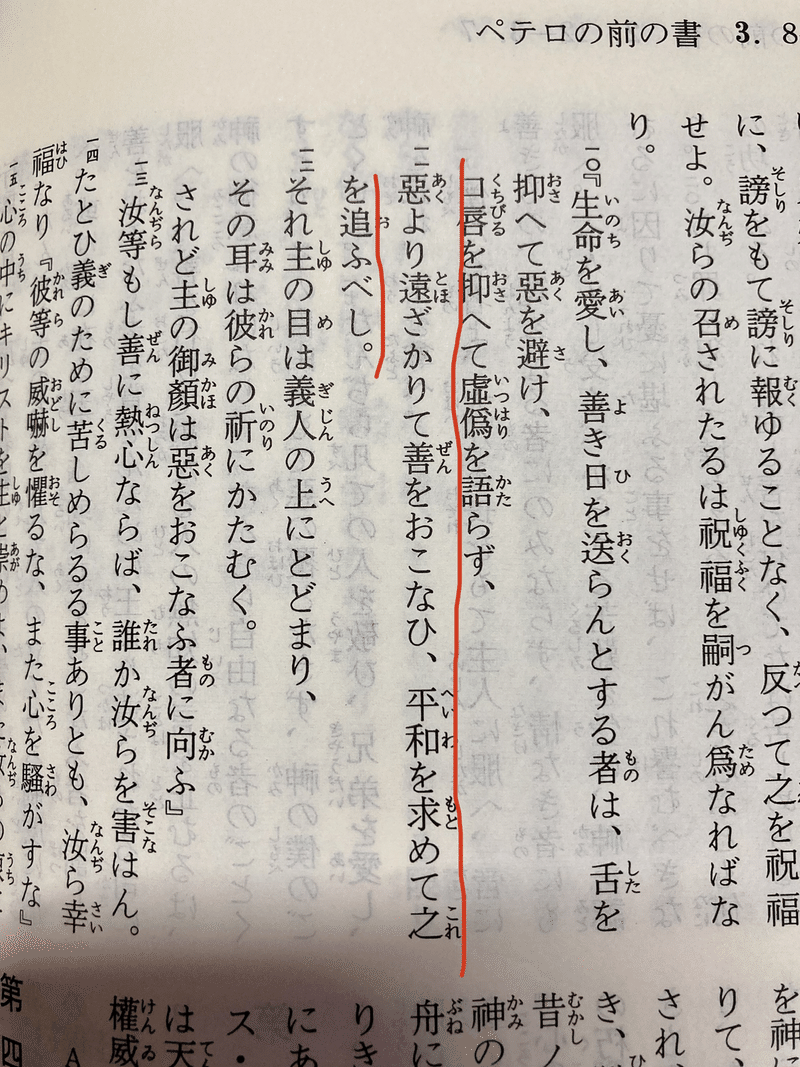 ペテロの前の書 3. 8
に、謗をもて謗に報ゆることなく、反つて之を祝福
せよ。汝らの召されたるは祝福を嗣がん爲なればな
り。
一〇『生命を愛し、善き日を送らんとする者は、舌を
抑へて惡を避け、
口唇を抑へて虛僞を語らず、
一一 惡より遠ざかりて善をおこなひ、平和を求めて之
を追ふべし。
一二 それ主の目は義人の上にとどまり、
その耳は彼らの祈にかたむく。
されど主の御顏は惡をおこなふ者に向ふ』
一三 汝等もし善に熱心ならば、誰か汝らを害はん。
一四 たとひ義のために苦しめらるる事ありとも、汝ら幸
福なり『彼等の威嚇を懼るな、また心を騷がすな』
一五 心の中にキリストを主と崇めよ、
を神に
りて、
され、
き、
昔ノ
神の
舟に
りき
にあ
ス・
は天
權威
第四